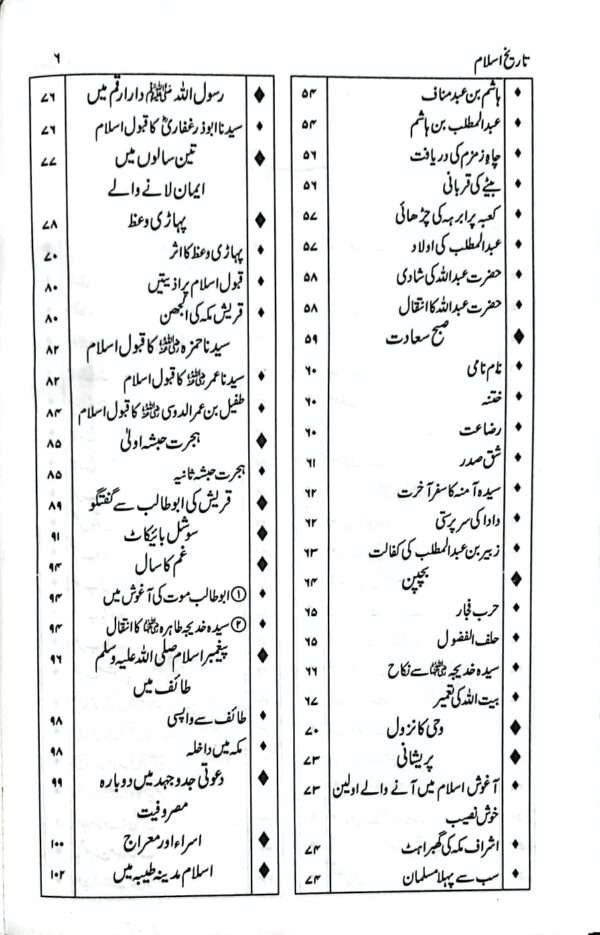 تاریخ اسلام ۶
♦ ہاشم بن عبد مناف ۵۴
♦ عبدالمطلب بن ہاشم ۵۴
♦ چاہ زمزم کی دریافت ۵۶
♦ بیٹے کی قربانی ۵۶
♦ کعبہ پر ابرہہ کی چڑھائی ۵۷
♦ عبدالمطلب کی اولاد ۵۷
♦ حضرت عبداللہ کی شادی ۵۸
♦ حضرت عبداللہ کا انتقال ۵۸
◆ صبح سعادت ۵۹
♦ نام نامی ۶۰
♦ ختنہ ۶۰
♦ رضاعت ۶۰
♦ شق صدر ۶۱
♦ سیدہ آمنہ کا سفر آخرت ۶۲
♦ دادا کی سرپرستی ۶۲
♦ زبیر بن عبدالمطلب کی کفالت ۶۳
◆ بچپن ۶۴
♦ حرب فجار ۶۵
♦ حلف الفضول ۶۵
♦ سیدہ خدیجہ رضی اللہ عنہا سے نکاح ۶۶
♦ بیت اللہ کی تعمیر ۶۷
◆ وحی کا نزول ۷۰
◆ پریشانی ۷۳
♦ آغوش اسلام میں آنے والے اولین ۷۳
خوش نصیب
♦ اشراف مکہ کی گھبراہٹ ۷۴
♦ سب سے پہلا مسلمان ۷۴
◆ رسول اللہ ﷺ دار ارقم میں ۷۶
♦ سیدنا ابوذر غفاریؓ کا قبول اسلام ۷۶
◆ تین سالوں میں ۷۷
ایمان لانے والے
◆ پہاڑی وعظ ۷۸
♦ پہاڑی وعظ کا اثر ۷۰
♦ قبول اسلام پر اذیتیں ۸۰
♦ قریش مکہ کی الجھن ۸۰
سیدنا حمزہ رضی اللہ عنہ کا قبول اسلام ۸۲
♦ سیدنا عمر رضی اللہ عنہ کا قبول اسلام ۸۲
♦ طفیل بن عمر الدوسی رضی اللہ عنہ کا قبول اسلام ۸۴
◆ ہجرت حبشہ اولیٰ ۸۵
♦ ہجرت حبشہ ثانیہ ۸۵
◆ قریش کی ابوطالب سے گفتگو ۸۹
◆ سوشل بائیکاٹ ۹۱
◆ غم کا سال ۹۴
♦ ① ابوطالب موت کی آغوش میں ۹۴
♦ ② سیدہ خدیجہ طاہرہ رضی اللہ عنہا کا انتقال ۹۴
◆ پیغمبر اسلام صلی اللہ علیہ وسلم ۹۶
طائف میں
♦ طائف سے واپسی ۹۸
♦ مکہ میں داخلہ ۹۸
◆ دعوتی جدوجہد میں دوبارہ ۹۹
مصروفیت
◆ اسراء اور معراج ۱۰۰
◆ اسلام مدینہ طیبہ میں ۱۰۲